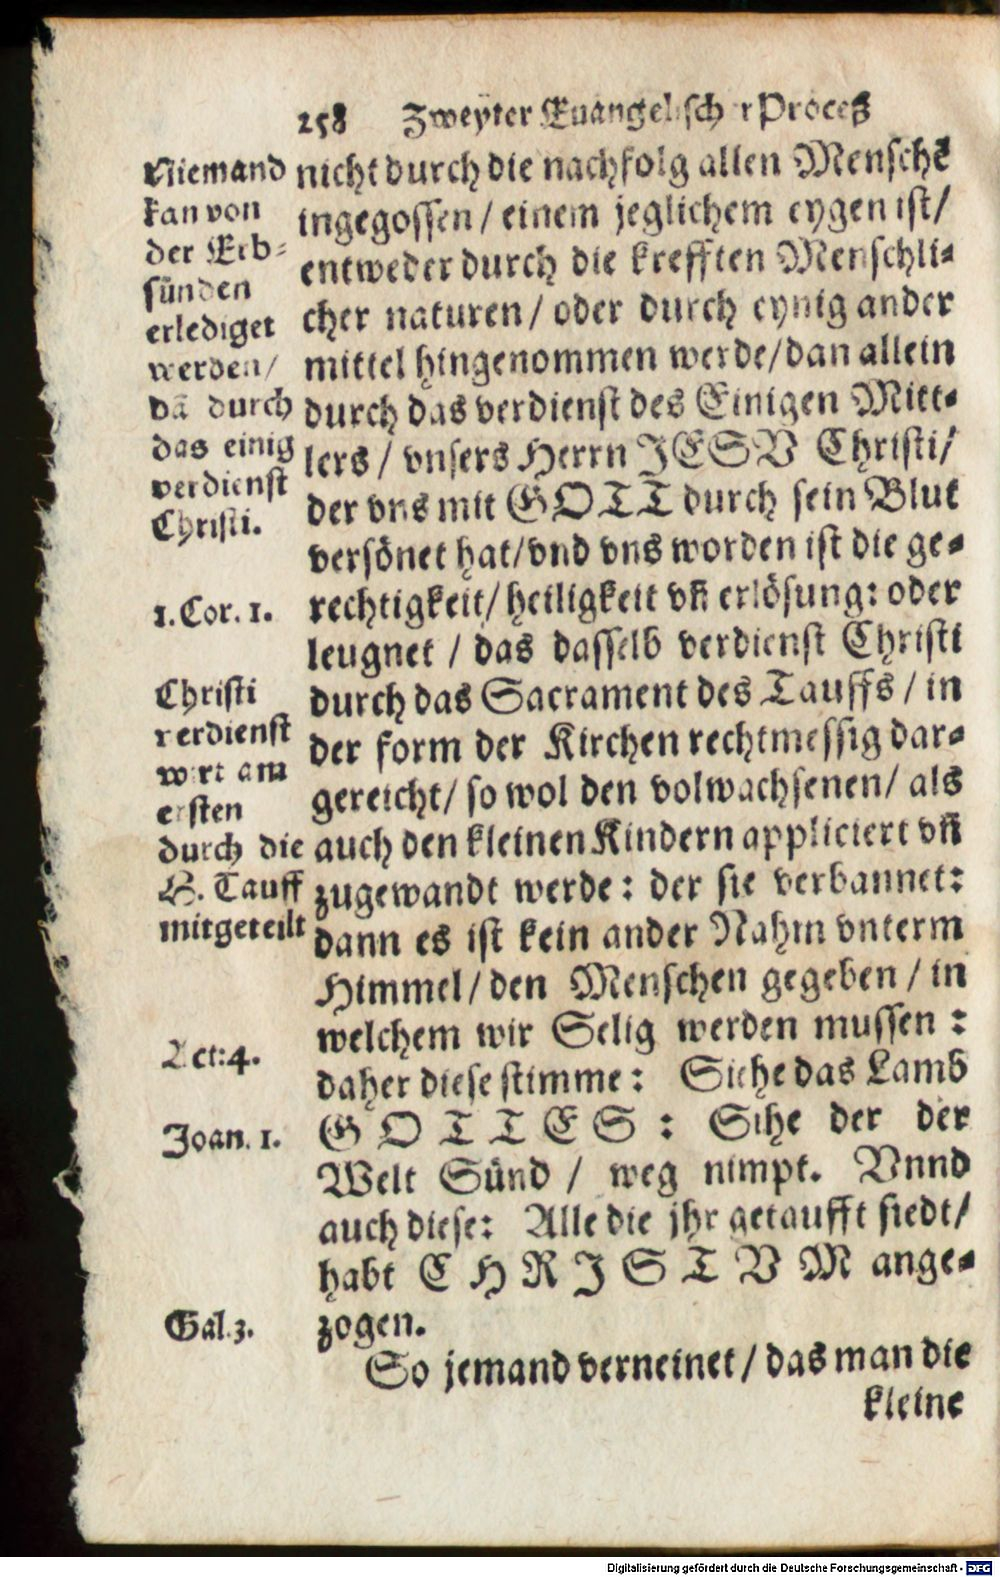 258 Zweyter Euangelischer Proceß
Niemand
kan von
der Erb-
sünden
erlediget
werden/
dã durch
das einig
verdienst
Christi.
1. Cor. 1.
Christi
verdienst
wirt am
ersten
durch die
H. Tauff
mitgeteilt
Act: 4.
Joan. 1.
Gal. 3.
nicht durch die nachfolg allen Menschẽ
ingegossen / einem jeglichem eygen ist/
entweder durch die krefften Menschli-
cher naturen / oder durch eynig ander
mittel hingenommen werde/dan allein
durch das verdienst des Einigen Mitt-
lers / vnsers Herrn JESV Christi/
der vns mit GOTT durch sein Blut
versönet hat/vnd vns worden ist die ge-
rechtigkeit/ heiligkeit vñ erlösung: oder
leugnet / das dasselb verdienst Christi
durch das Sacrament des Tauffs / in
der form der Kirchen rechtmessig dar-
gereicht/ so wol den volwachsenen/ als
auch den kleinen Kindern appliciert vñ
zugewandt werde: der sie verbannet:
dann es ist kein ander Nahm vnterm
Himmel/ den Menschen gegeben / in
welchem wir Selig werden mussen:
daher diese stimme: Siehe das Lamb
GOTTES: Sihe der der
Welt Sünd / weg nimpt. Vnnd
auch diese: Alle die jhr getaufft siedt/
habt CHRISTVM ange-
zogen.
So jemand verneinet / das man die
kleine
Digitalisierung gefördert durch die Deutsche Forschungsgemeinschaft - DFG